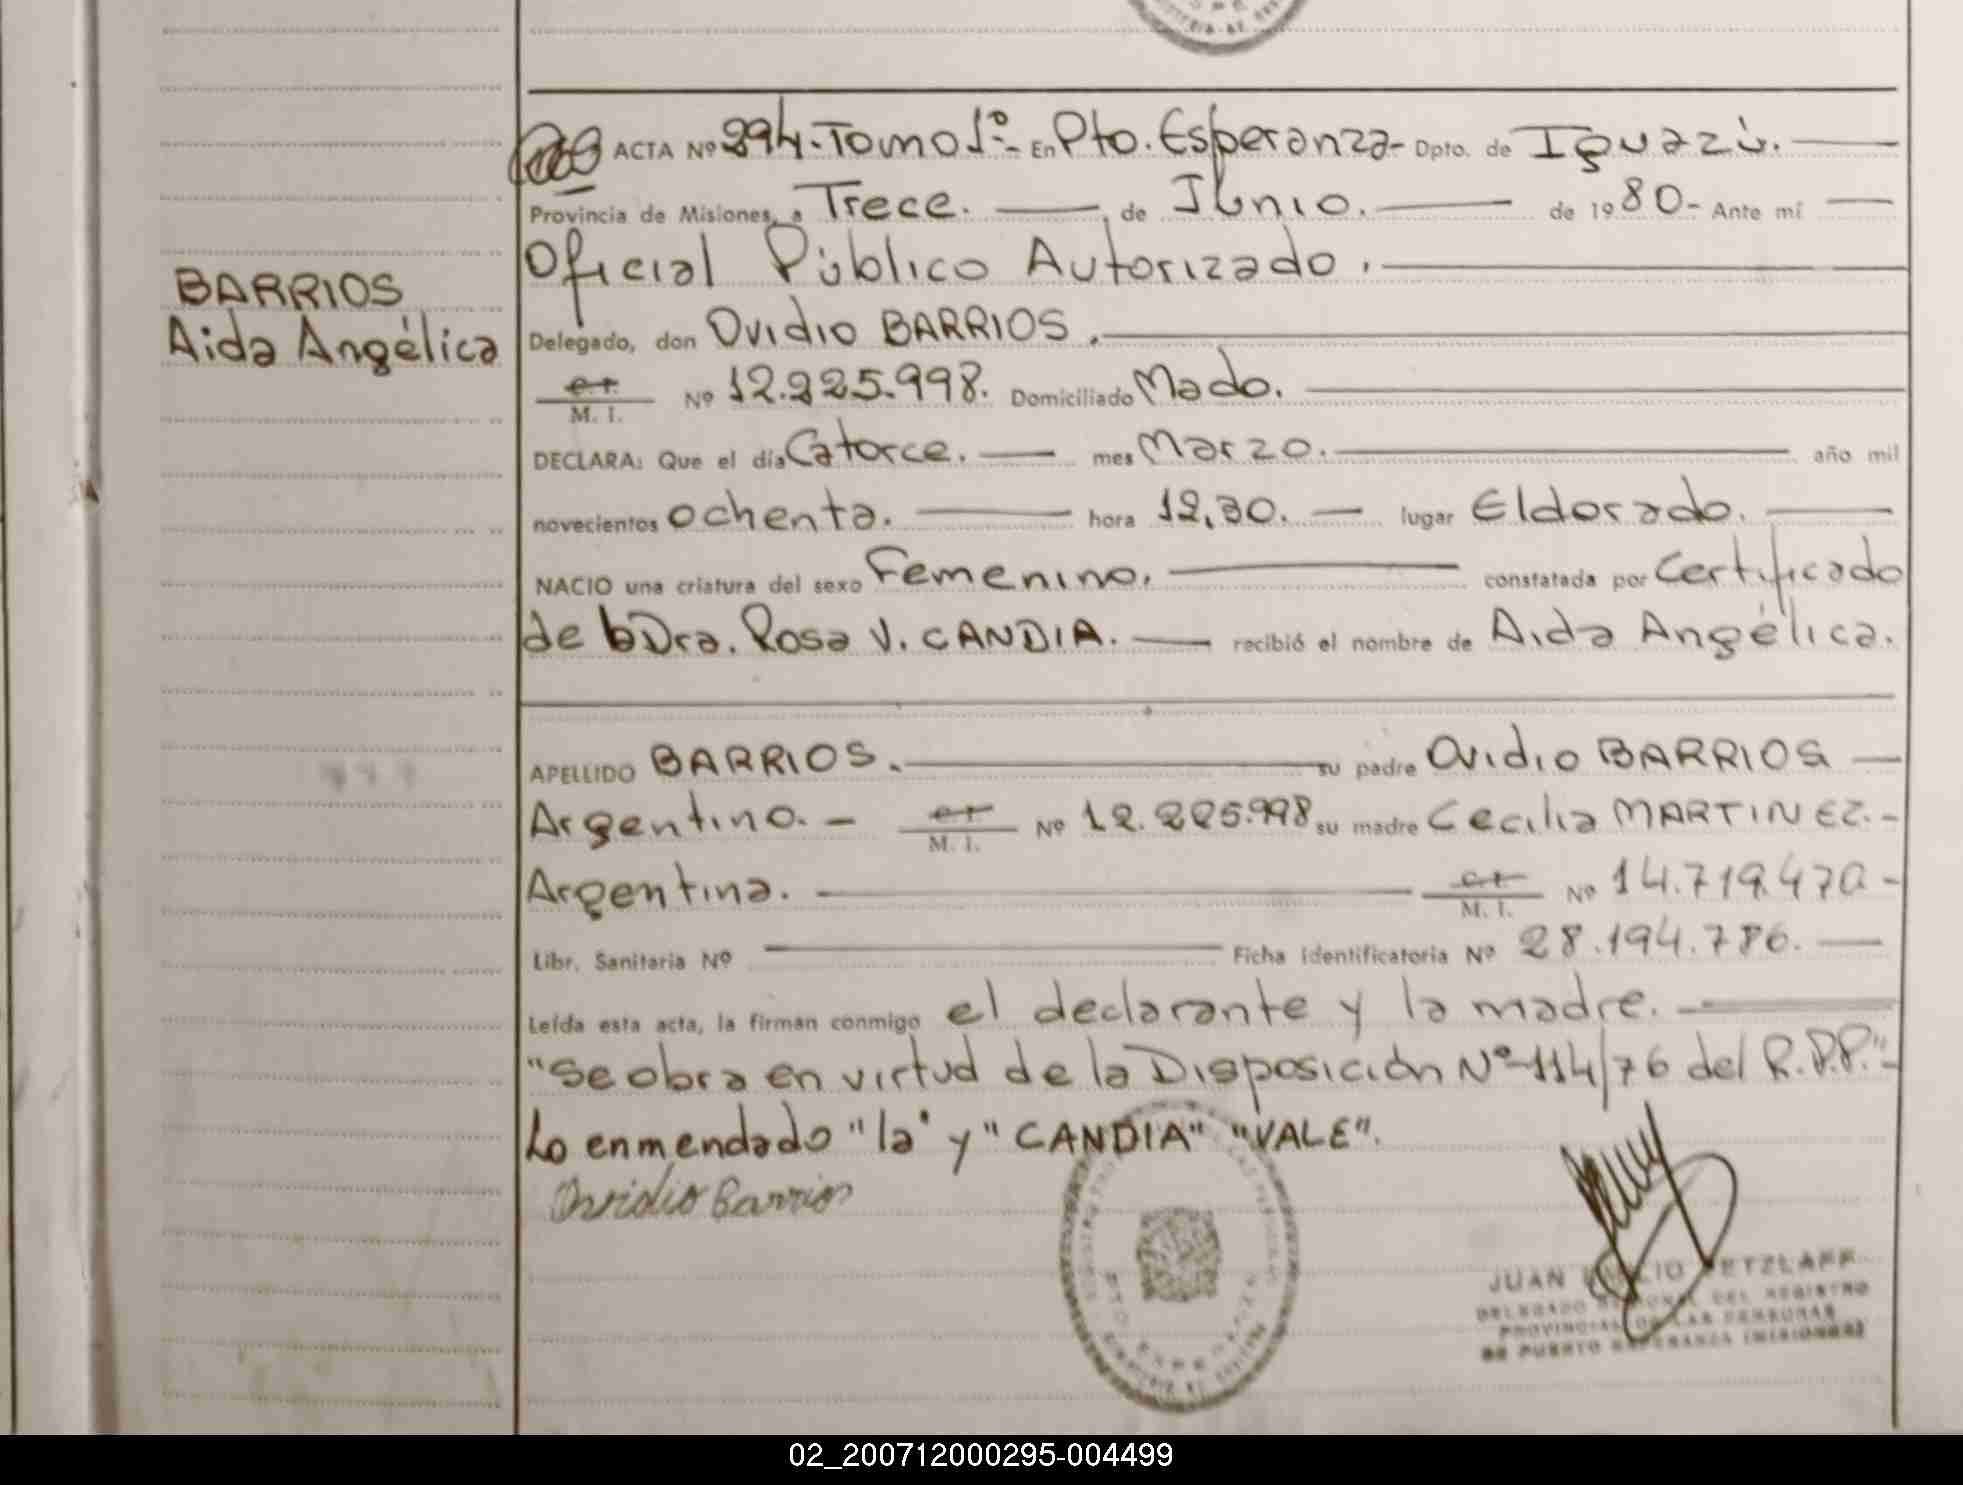 ACTA Nº 294.-Tomo 1º.- En Pto. Esperanza- Dpto. de Iguazú.
Provincia de Misiones, a Trece. , de Junio. de 1980- Ante mí
Oficial Público Autorizado.
BARRIOS
Aida Angélica
Delegado, don Ovidio BARRIOS.
C.I.
M. I. Nº 12.225.998. Domiciliado Mado.
DECLARA: Que el día Catorce. mes Marzo. año mil
novecientos ochenta. hora 12,30. lugar Eldorado.
NACIO una criatura del sexo Femenino. constatada por Certificado
de la Dra. Rosa V. CANDIA. recibió el nombre de Aida Angélica.
APELLIDO BARRIOS. su padre Ovidio BARRIOS
Argentino.- C.I.
M. I. Nº 12.225.998 su madre Cecilia MARTINEZ.-
Argentina. C.I.
M. I. Nº 14.719.470-
Libr. Sanitaria Nº Ficha Identificatoria Nº 28.194.786.
Leída esta acta, la firman conmigo el declarante y la madre.
"Se obra en virtud de la Disposición Nº-114/76 del R.P.P."-
Lo enmendado "la" y "CANDIA" "VALE".
Ovidio Barrios
JUAN
DELEGADO REGIONAL DEL REGISTRO
PROVINCIAL DE LAS PERSONAS
DE PUERTO ESPERANZA (MISIONES)
02_200712000295-004499